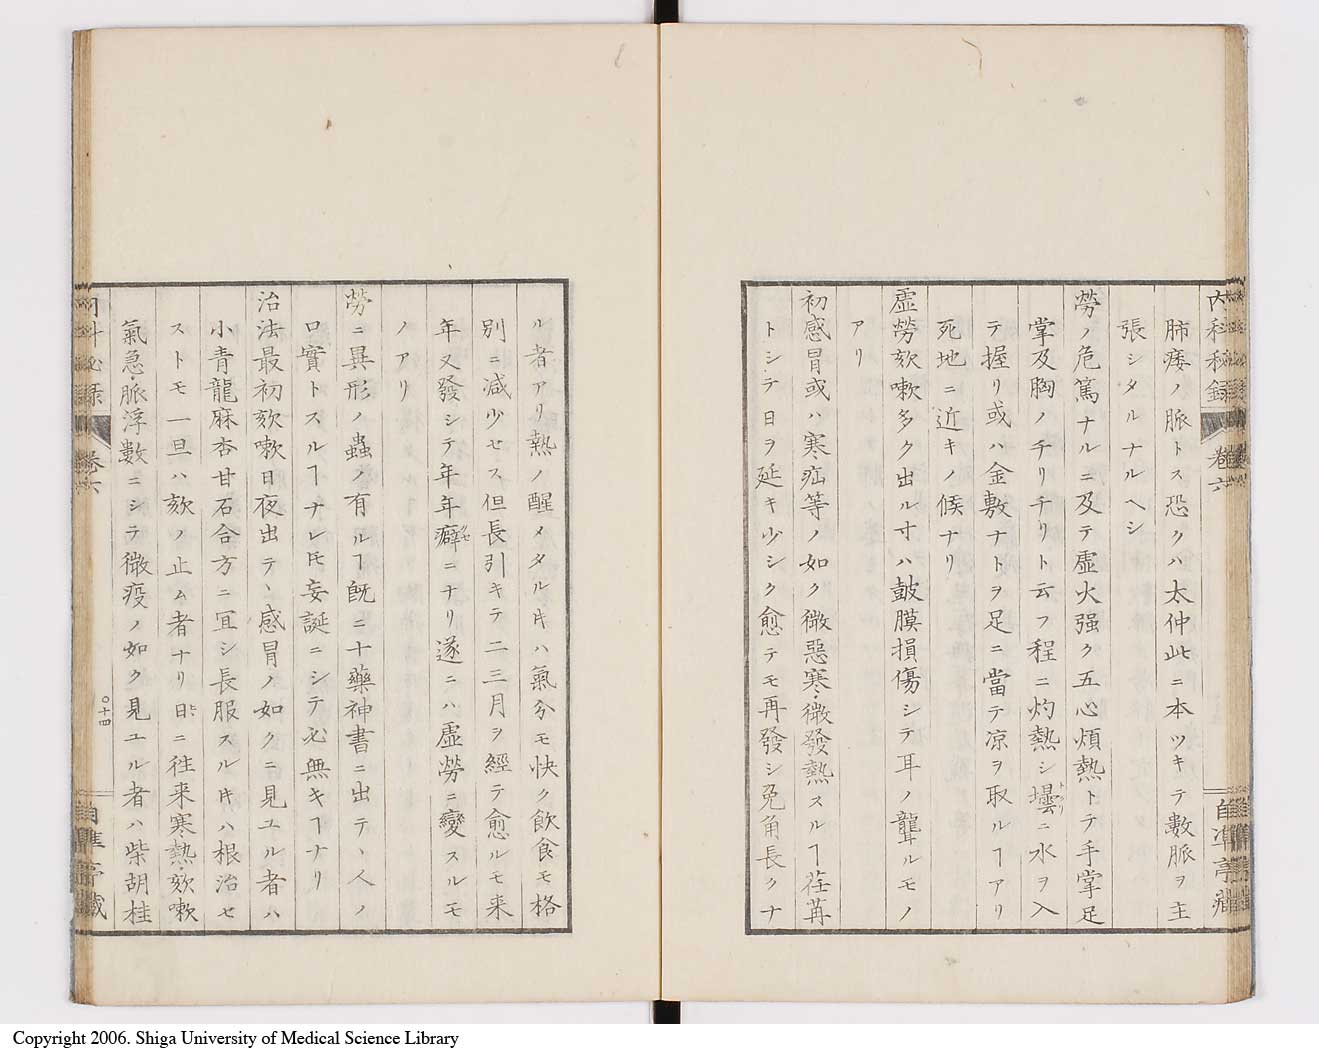 内科秘録 卷六 自準亭藏
肺痿ノ脈トス恐クハ太仲此ニ本ツキテ數脈ヲ主
張シタルナルヘシ
勞ノ危篤ナルニ及テ虛火强ク五心煩熱トテ手掌足
掌及胸ノチリチリト云フ程ニ灼熱シ壜ニ水ヲ入
テ握リ或ハ金敷ナトヲ足ニ當テ凉ヲ取ルヿアリ
死地ニ近キノ候ナリ
虛勞欬嗽多ク出ル寸ハ鼓膜損傷シテ耳ノ聾ルモノ
アリ
初感冒或ハ寒疝等ノ如ク微惡寒微發熱スルヿ荏苒
トシテ日ヲ延キ少シク愈テモ再發シ兎角長クナ
ル者アリ熱ノ醒メタル片ハ氣分モ快ク飮食モ格
別ニ減少セス但長引キテ二三月ヲ經テ愈ルモ来
年又發シテ年年癖ニナリ遂ニハ虛勞ニ變スルモ
ノアリ
勞ニ異形ノ蟲ノ有ルヿ旣ニ十藥神書ニ出テヽ人ノ
口實トスルヿナレ𪜈妄誕ニシテ必無キヿナリ
治法最初欬嗽日夜出テヽ感冒ノ如クニ見ユル者ハ
小青龍麻杏甘石合方ニ宜シ長服スル片ハ根治セ
ストモ一旦ハ欬ノ止ム者ナリ日ニ往来寒熱欬嗽
氣急脈浮數ニシテ微疫ノ如ク見ユル者ハ柴胡桂
内科秘录 卷六 〇十四 自準亭藏
Copyright 2006. Shiga University of Medical Science Library